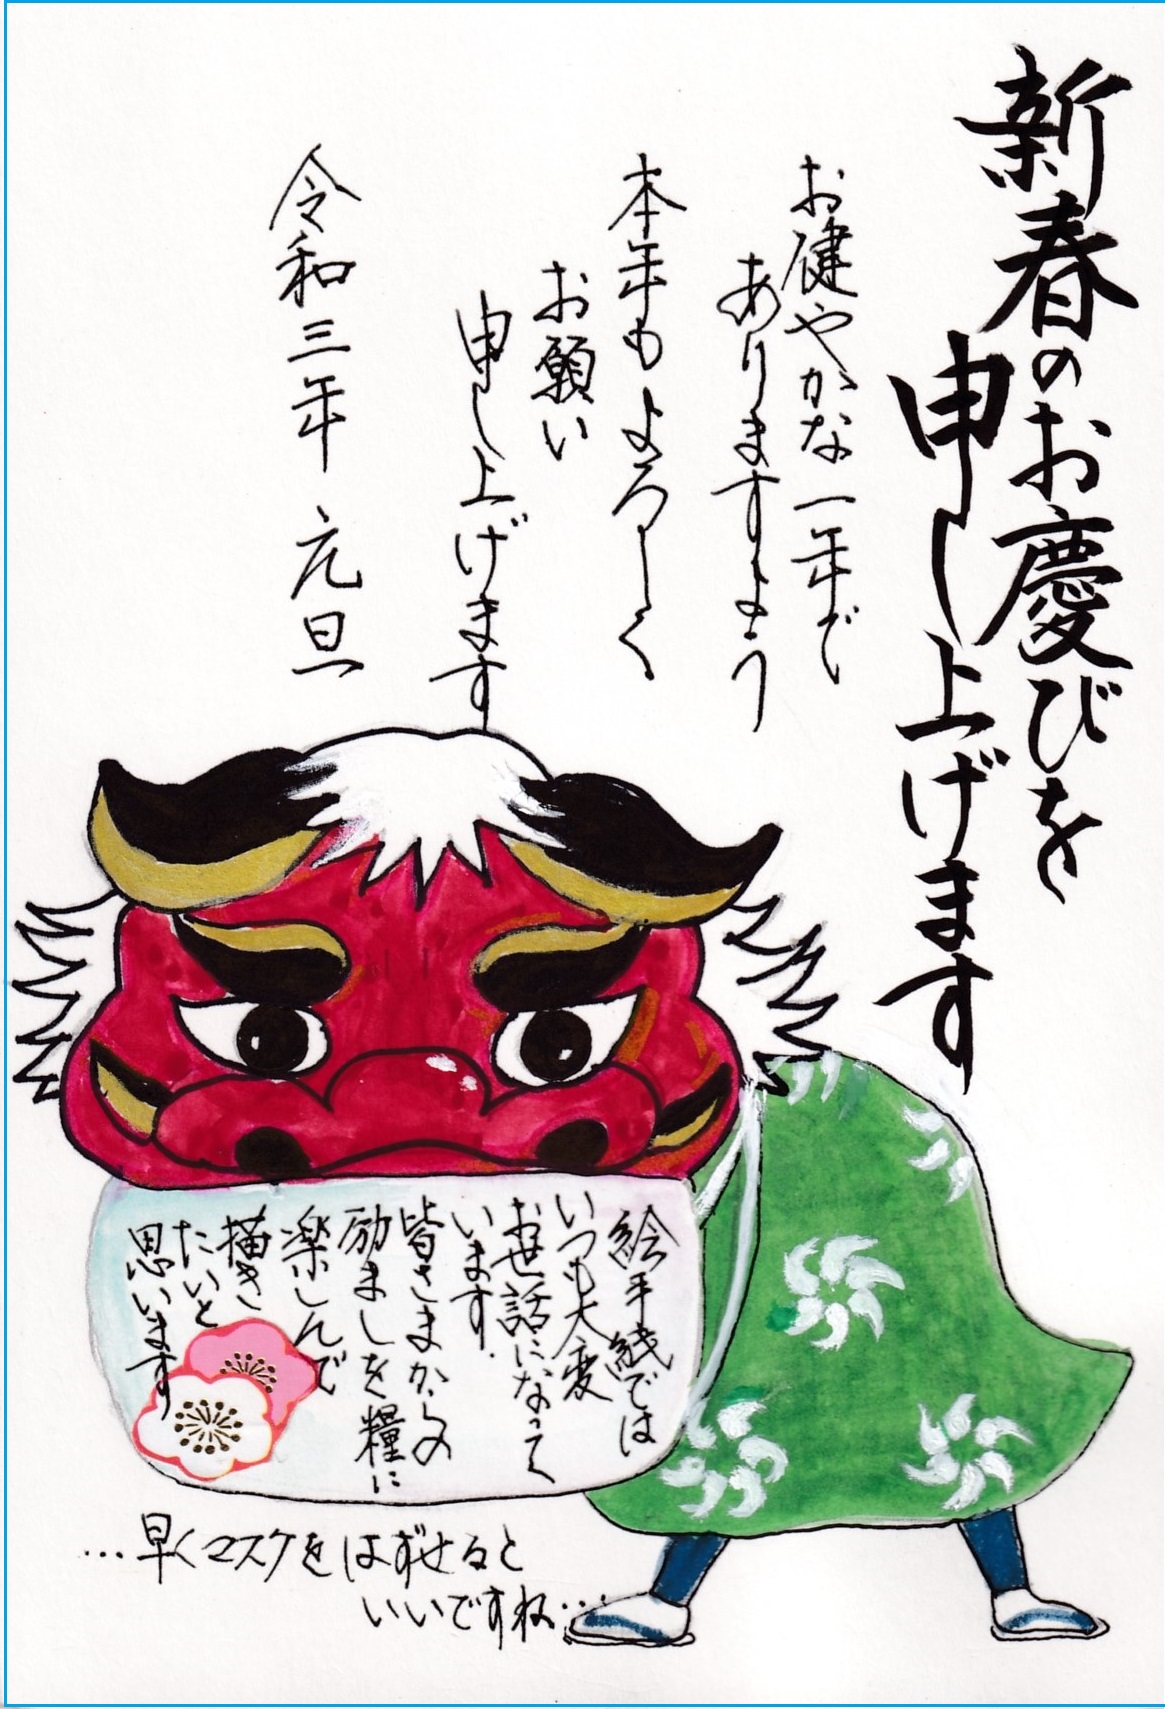 新春のお慶びを
申し上げます
お健やかな一年で
ありますよう
本年もよろしく
お願い
申し上げます
令和三年 元旦
絵手紙では
いつも大変
お世話になって
います.
皆さまからの
励ましを糧に
楽しんで
描き
たいと
思います
…早くマスクをはずせると
いいですね…